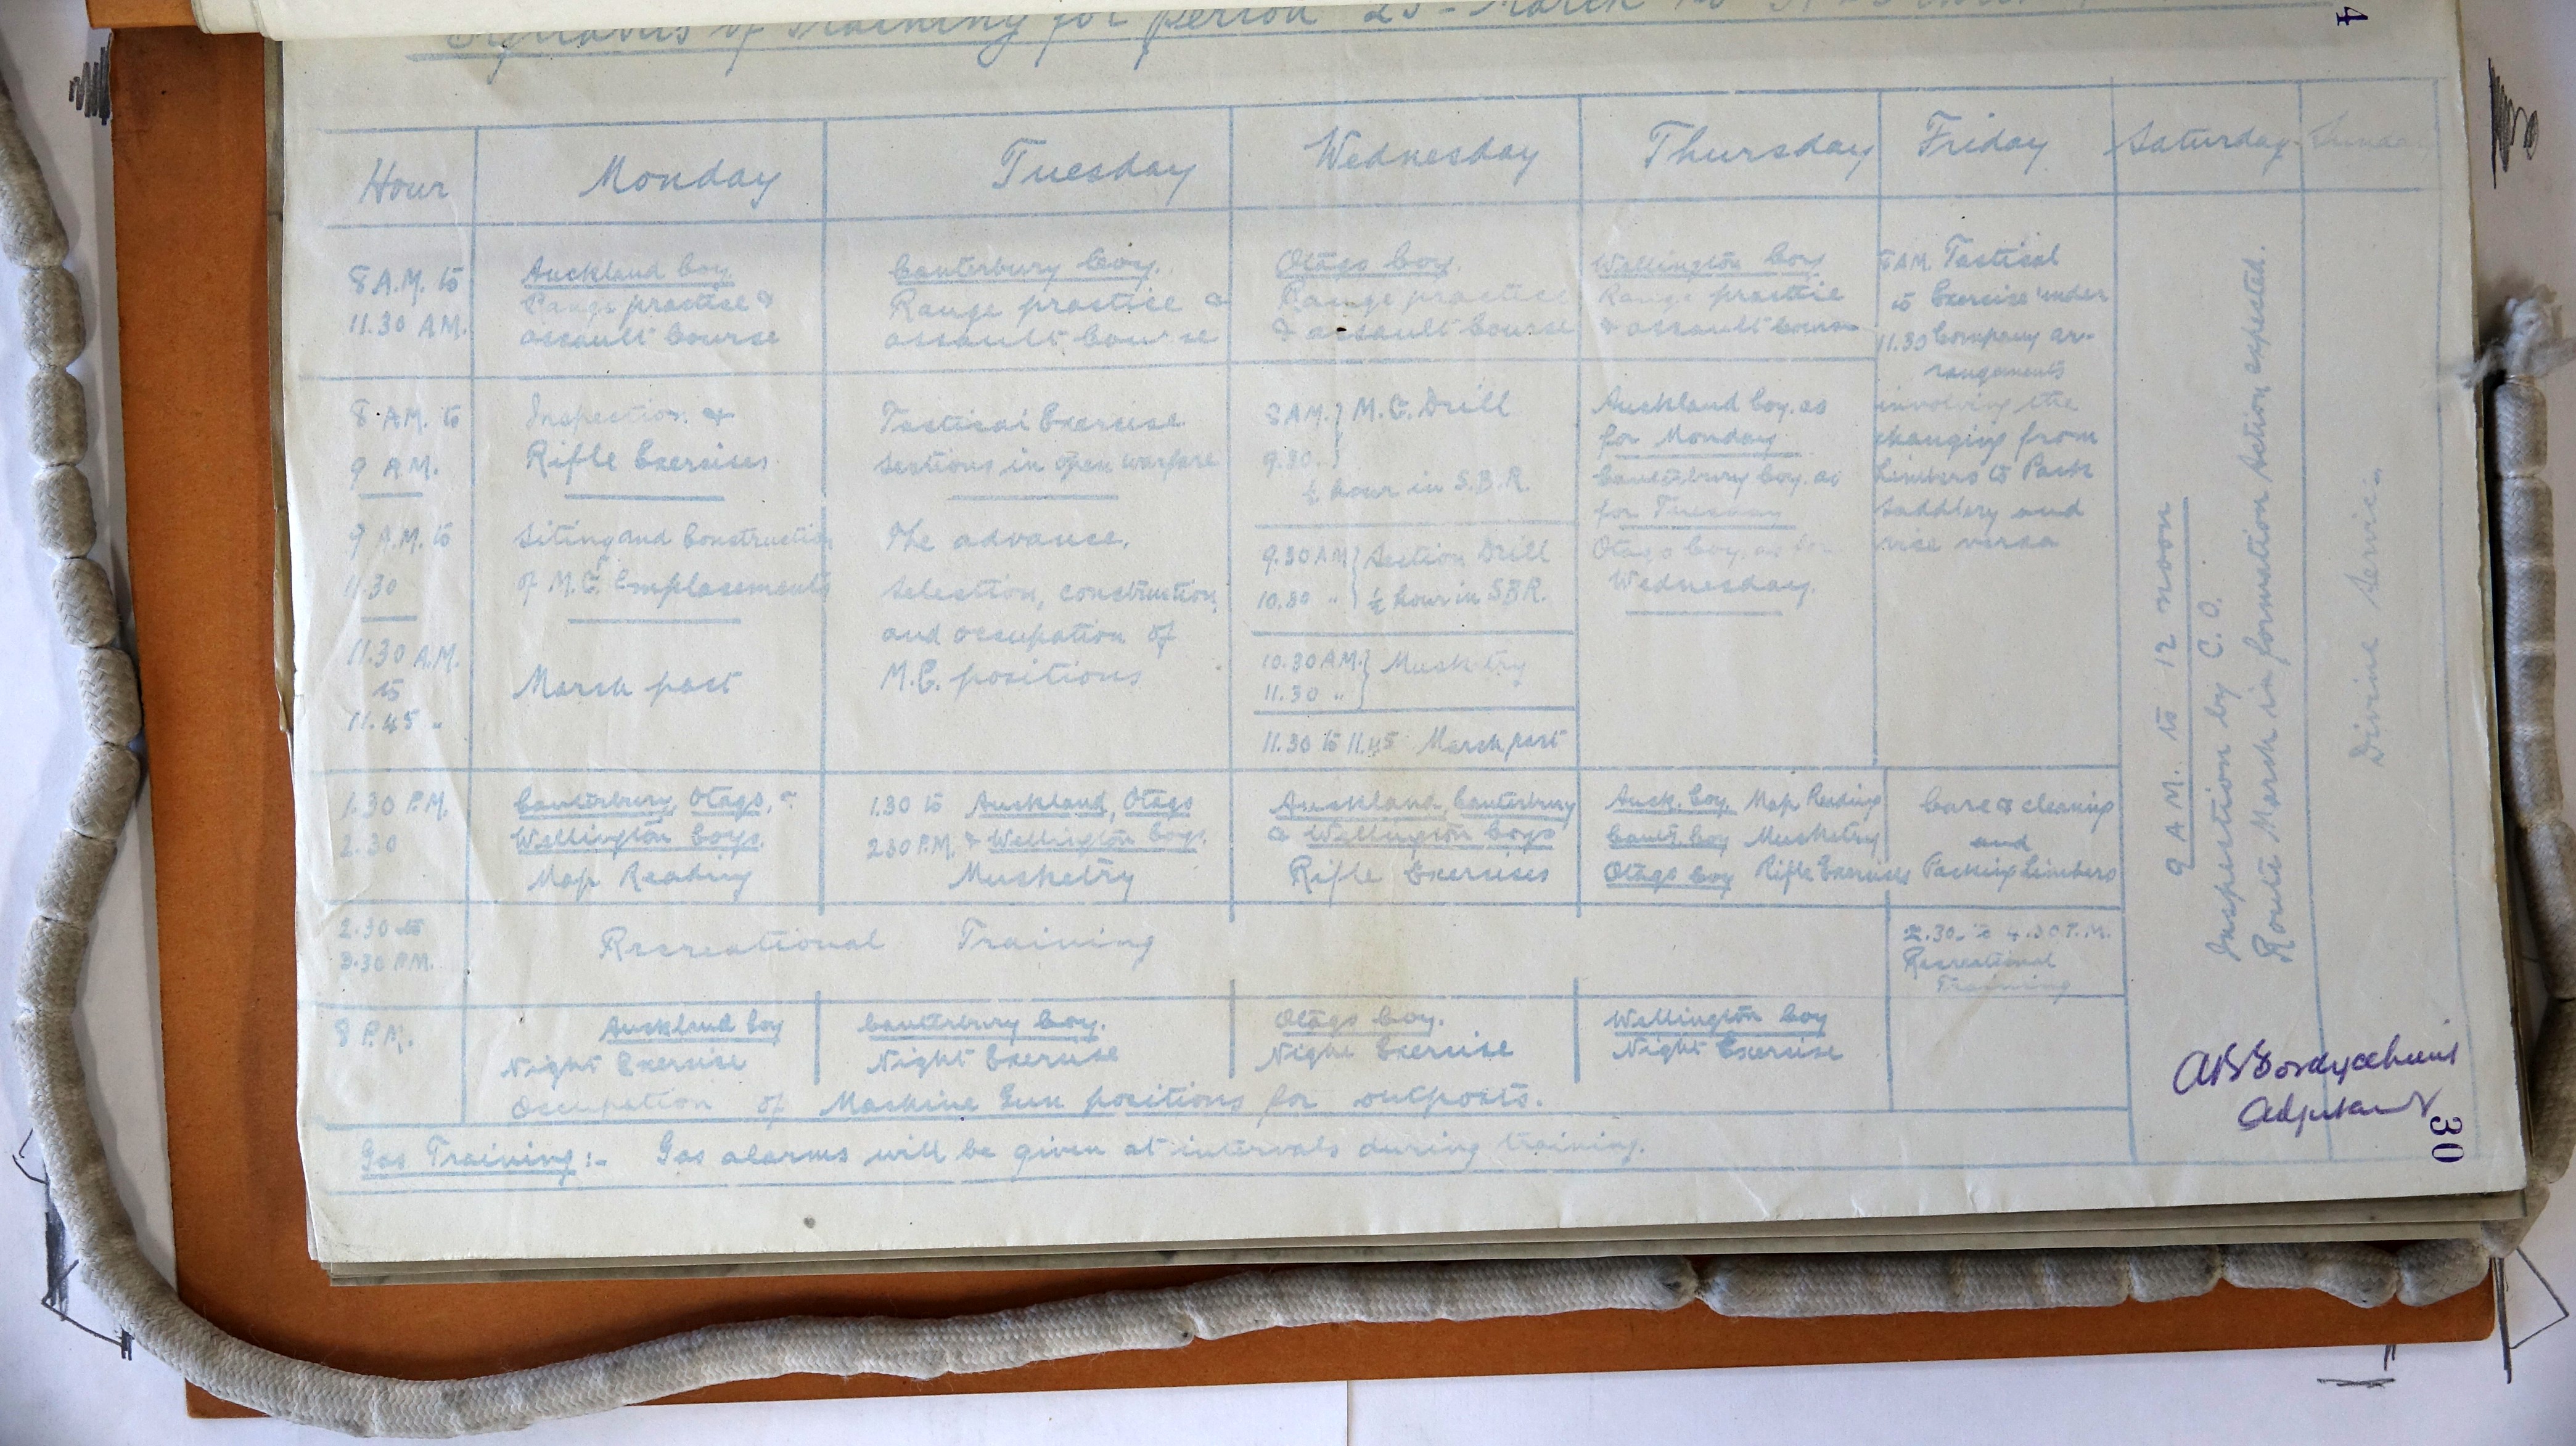 Syllabus of Training for period 25 - March to
4
Hour Monday Tuesday Wednesday Thursday Friday Saturday Sunday
8 A.M. to
11.30 A.M.
Auckland Coy.
Range practice &
assault Course
Canterbury Coy.
Range practice &
assault Course
Otago Coy.
Range practice
& assault Course
Wellington Coy
Range practice
& assault Course
8 A.M. Tactical
to Exercise under
11.30 Company ar-
rangements
involving the
changing from
Limbers to Pack
Saddlery and
vice versa
8 A.M. to
9 A.M.
Inspection &
Rifle Exercises
Tactical Exercise
Sections in open warfare
8 A.M. } M.G. Drill
9.30. }
½ hour in S.B.R.
Auckland Coy. as
for Monday
Canterbury Coy. as
for Tuesday
Otago Coy. as for
Wednesday.
9 A.M. to
11.30
Siting and Construction
of M.G. Emplacements
The advance.
Selection, construction,
and occupation of
M.G. positions
9.30 AM } Section Drill
10.30 " } ½ hour in S.B.R.
10.30 A.M. } Musketry
11.30 " }
11.30 to 11.45 March past
11.30 A.M.
to
11.45 "
March past
1.30 P.M.
2.30
Canterbury, Otago, &
Wellington Coys.
Map Reading
1.30 to Auckland, Otago
2.30 P.M. & Wellington Coys.
Musketry
Auckland, Canterbury
& Wellington Coys
Rifle Exercises
Auck. Coy. Map Reading
Cant. Coy Musketry
Otago Coy Rifle Exercises
Care & cleaning
and
Packing Limbers
2.30 to
3.30 P.M.
Recreational Training
2.30 to 4.30 P.M.
Recreational
Training
8 P.M.
Auckland Coy
Night Exercise
Canterbury Coy.
Night Exercise
Otago Coy.
Night Exercise
Wellington Coy
Night Exercise
Occupation of Machine Gun positions for outposts.
9 A.M. to 12 noon
Inspection by C.O.
Route March in formation Action expected.
Divine Service
Gas Training:- Gas alarms will be given at intervals during training.
Adjutant
30